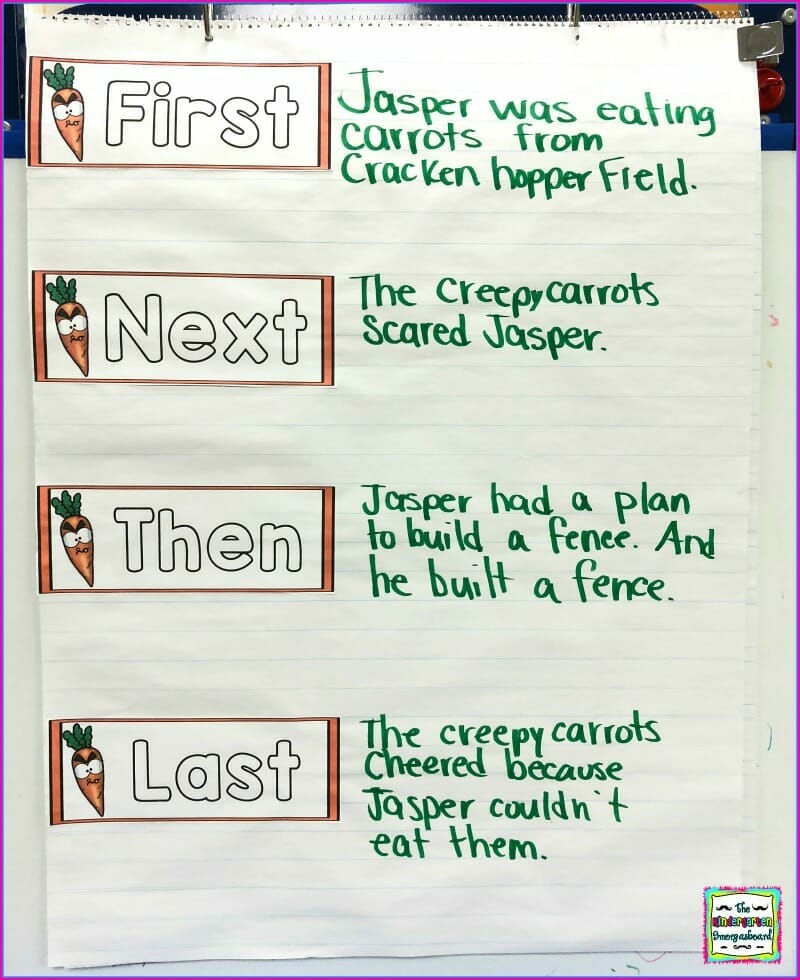 First
Jasper was eating
carrots from
Cracken hopper Field.
Next
The Creepy carrots
Scared Jasper.
Then
Jasper had a plan
to build a fence. And
he built a fence.
Last
The creepy carrots
Cheered because
Jasper couldn't
eat them.
The
Kindergarten
Smorgasboard